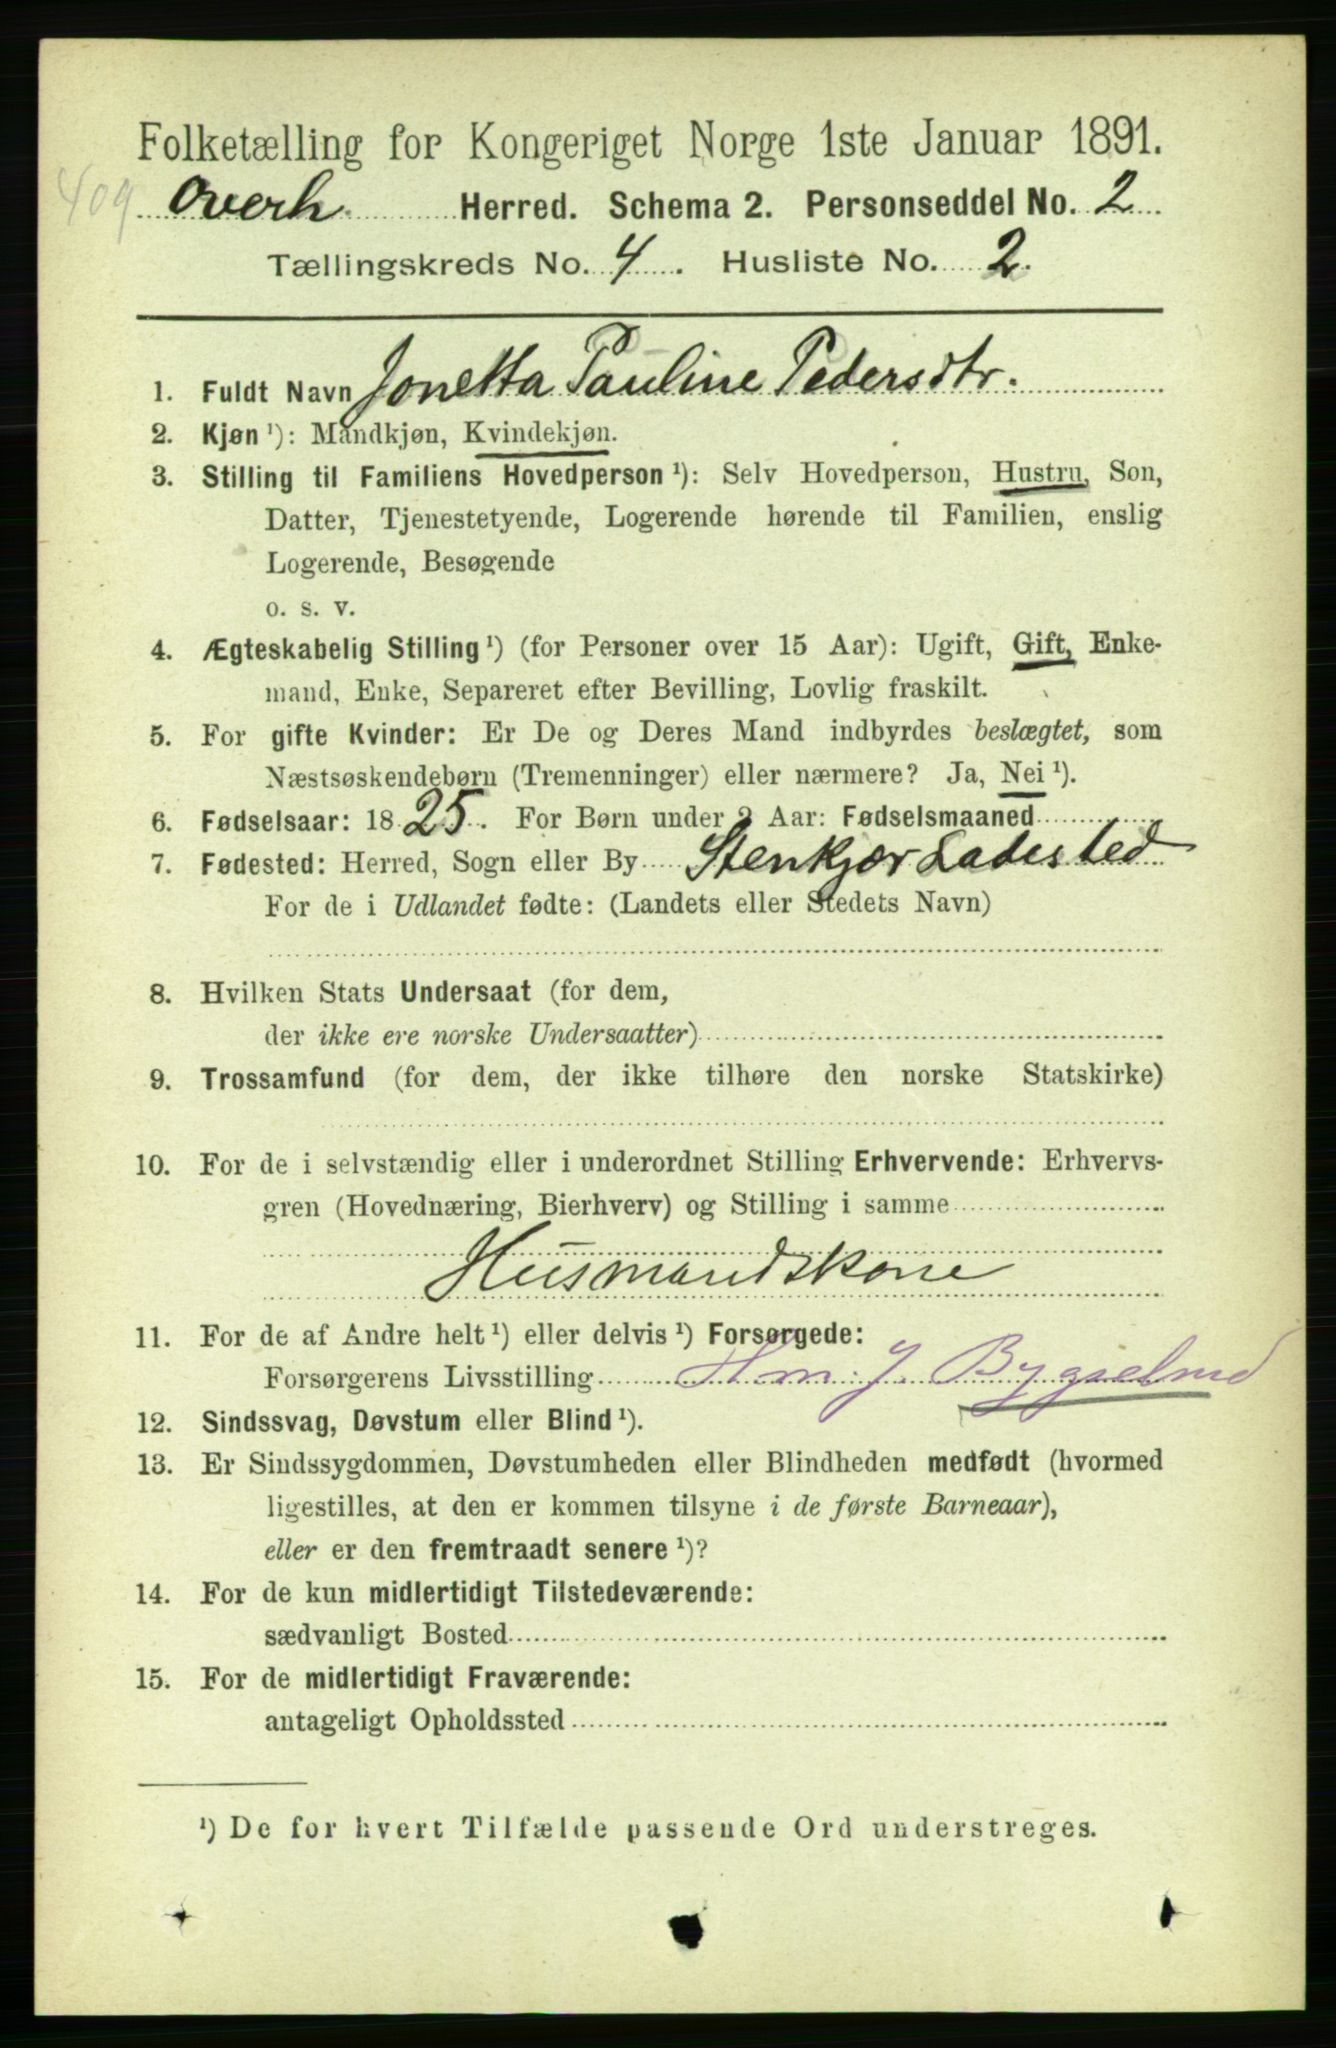 Folketælling for Kongeriget Norge 1ste Januar 1891.
409 Overh. Herred. Schema 2. Personseddel No. 2
Tællingskreds No. 4. Husliste No. 2.
1. Fuldt Navn Jonetta Pauline Pedersdtr.
2. Kjøn ¹): Mandkjøn, Kvindekjøn.
3. Stilling til Familiens Hovedperson ¹): Selv Hovedperson, Hustru, Søn,
Datter, Tjenestetyende, Logerende hørende til Familien, enslig
Logerende, Besøgende
o. s. v.
4. Ægteskabelig Stilling ¹) (for Personer over 15 Aar): Ugift, Gift, Enke-
mand, Enke, Separeret efter Bevilling, Lovlig fraskilt.
5. For gifte Kvinder: Er De og Deres Mand indbyrdes beslægtet, som
Næstsøskendebørn (Tremenninger) eller nærmere? Ja, Nei ¹).
6. Fødselsaar: 1825. For Børn under 2 Aar: Fødselsmaaned
7. Fødested: Herred, Sogn eller By Stenkjær Ladested
For de i Udlandet fødte: (Landets eller Stedets Navn)
8. Hvilken Stats Undersaat (for dem,
der ikke ere norske Undersaatter)
9. Trossamfund (for dem, der ikke tilhøre den norske Statskirke)
10. For de i selvstændig eller i underordnet Stilling Erhvervende: Erhvervs-
gren (Hovednæring, Bierhverv) og Stilling i samme
Husmandskone
11. For de af Andre helt ¹) eller delvis ¹) Forsørgede:
Forsørgerens Livsstilling Hm. J. Bygselmd
12. Sindssvag, Døvstum eller Blind ¹).
13. Er Sindssygdommen, Døvstumheden eller Blindheden medfødt (hvormed
ligestilles, at den er kommen tilsyne i de første Barneaar),
eller er den fremtraadt senere ¹)?
14. For de kun midlertidigt Tilstedeværende:
sædvanligt Bosted
15. For de midlertidigt Fraværende:
antageligt Opholdssted
¹) De for hvert Tilfælde passende Ord understreges.